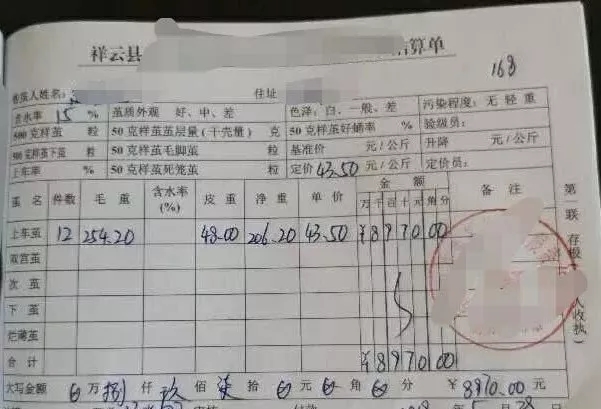 祥云县 结算单
168
售茧人姓名: 住址
含水率 15 % 茧质外观 好、中、差 色泽:白、一般、差 污染程度:无 轻 重
500克样茧 粒 50克样茧茧层量(干壳量) 克 50克样茧好蛹率 % 验级员:
500克样茧下茧 粒 50克样茧毛脚茧 粒 基准价 元/公斤 升降 元/公斤
上车率 % 50克样茧死笼茧 粒 定价 43.50 元/公斤 定价员:
茧名 件数 毛重 含水率(%) 皮重 净重 单价 金额 万千百十元角分 备注
上车茧 12 254.20 48.00 206.20 43.50 ¥8970.00
双宫茧
次茧
下茧
烂薄茧
合计 ¥8970.00
大写金额 万 捌 仟 玖 佰 柒 拾 元 角 分 ¥8970.00
第一联 存根 人收执